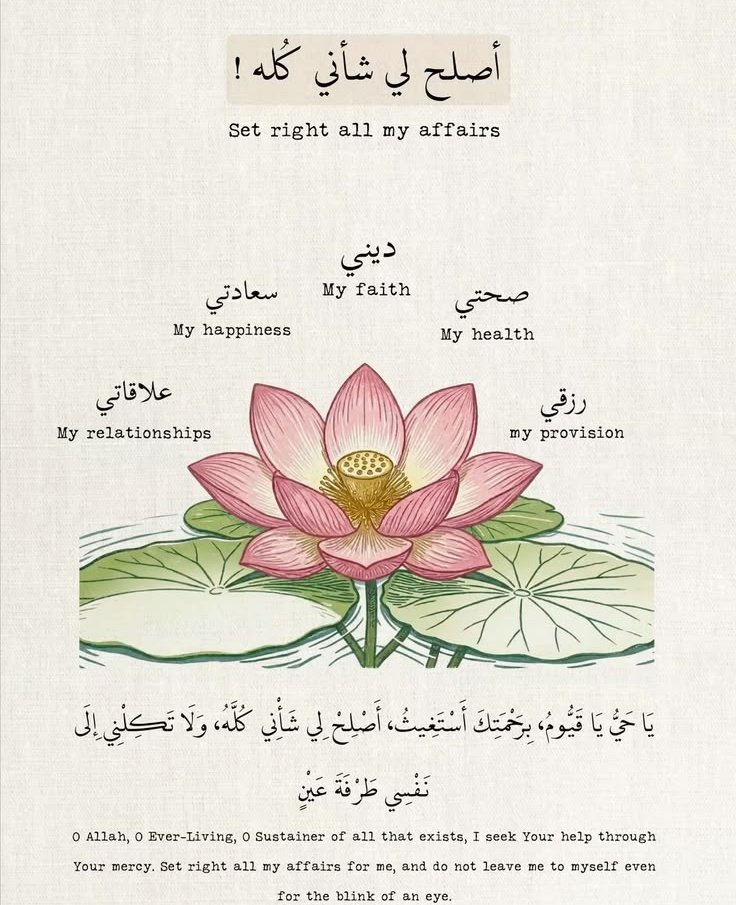 أصلح لي شأني كُله !
Set right all my affairs
ديني
My faith
سعادتي
My happiness
صحتي
My health
علاقاتي
My relationships
رزقي
my provision
يَا حَيُّ يَا قَيُّومُ، بِرَحْمَتِكَ أَسْتَغِيثُ، أَصْلِحْ لِي شَأْنِي كُلَّهُ، وَلَا تَكِلْنِي إِلَى
نَفْسِي طَرْفَةَ عَيْنٍ
O Allah, O Ever-Living, O Sustainer of all that exists, I seek Your help through
Your mercy. Set right all my affairs for me, and do not leave me to myself even
for the blink of an eye.